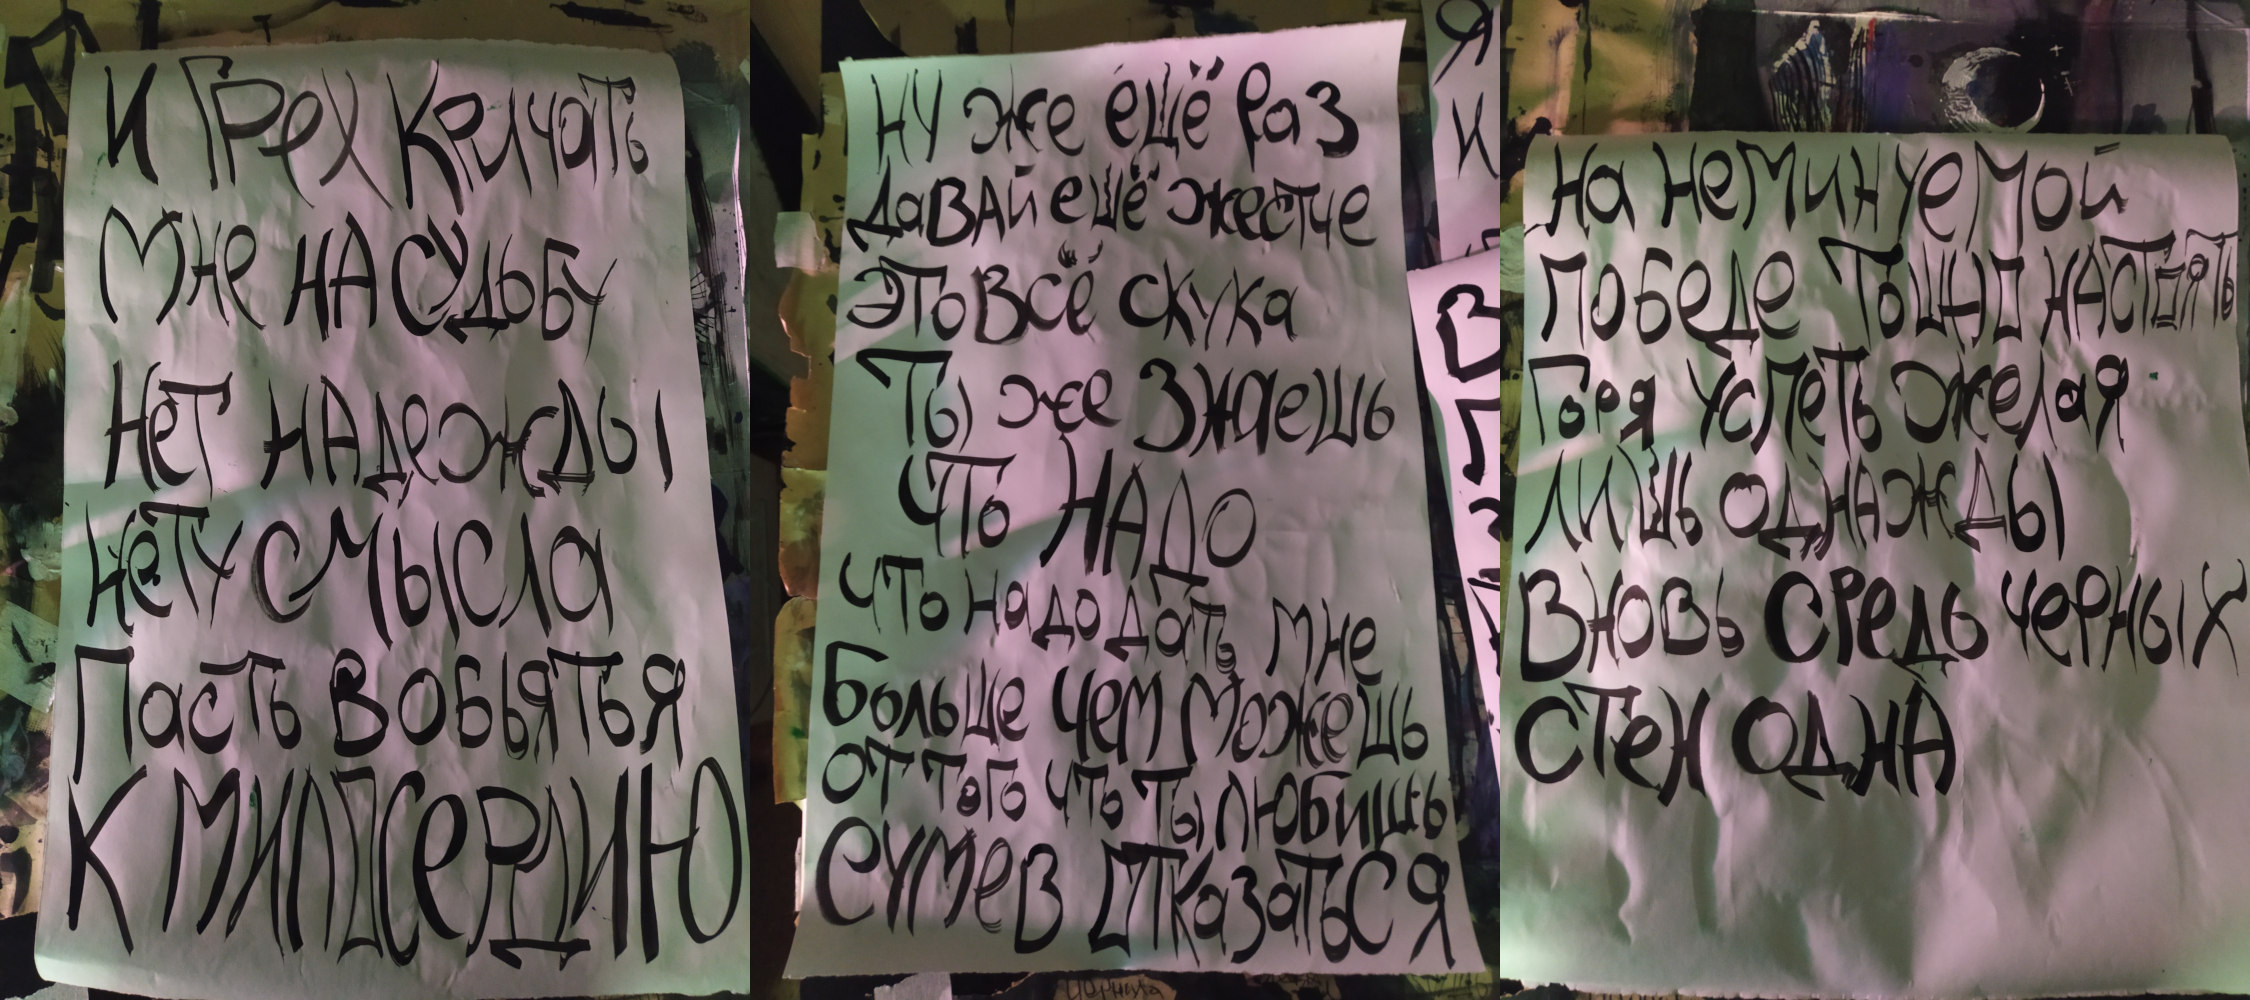 И ГРЕХ КРИЧАТЬ
МНЕ НА СУДЬБУ
НЕТ НАДЕЖДЫ
НЕТУ СМЫСЛА
ПАСТЬ В ОБЬЯТЬЯ
К МИЛОСЕРДИЮ
НУ ЖЕ ЕЩЁ РАЗ
ДАВАЙ ЕЩЁ ЖЕСТЧЕ
ЭТО ВСЁ СКУКА
ТЫ ЖЕ ЗНАЕШЬ
ЧТО НАДО
ЧТО НАДО ДАТЬ МНЕ
БОЛЬШЕ ЧЕМ МОЖЕШЬ
ОТ ТОГО ЧТО ТЫ ЛЮБИШЬ
СУМЕВ ОТКАЗАТЬСЯ
Я
И
В
НА НЕМИНУЕМОЙ
ПОБЕДЕ ТОШНО НАСТОЯТЬ
ГОРЯ УСПЕТЬ ЖЕЛАЯ
ЛИШЬ ОДНАЖДЫ
ВНОВЬ СРЕДЬ ЧЕРНЫХ
СТЕН ОДНА